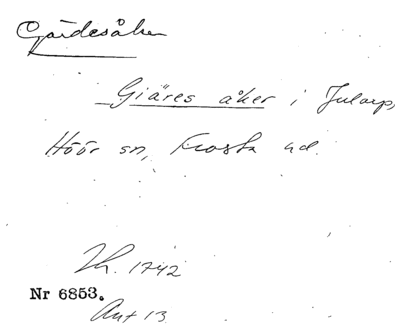 Gärdesåker
Giäres åker i Jularp,
Höör sn, Frosta hd.
Lh. 1742
Nr 6853.
Ant 13